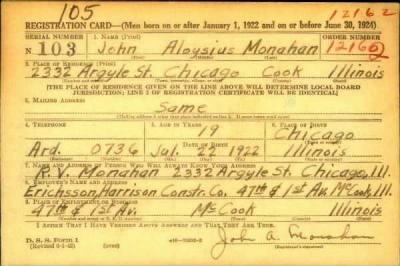 105
12162
REGISTRATION CARD—(Men born on or after January 1, 1922 and on or before June 30, 1924)
SERIAL NUMBER 1. NAME (Print) ORDER NUMBER
N 103 John Aloysius Monahan 12166
2. PLACE OF RESIDENCE (Print)
2332 Argyle St. Chicago Cook Illinois
[THE PLACE OF RESIDENCE GIVEN ON THE LINE ABOVE WILL DETERMINE LOCAL BOARD
JURISDICTION; LINE 2 OF REGISTRATION CERTIFICATE WILL BE IDENTICAL]
3. MAILING ADDRESS
Same
4. TELEPHONE 5. AGE IN YEARS 6. PLACE OF BIRTH
19 Chicago
DATE OF BIRTH
Ard. 0736 Jul. 22 1922 Illinois
7. NAME AND ADDRESS OF PERSON WHO WILL ALWAYS KNOW YOUR ADDRESS
R.V. Monahan 2332 Argyle St. Chicago, Ill.
8. EMPLOYER'S NAME AND ADDRESS
Ericksson, Harrison Constr. Co. 47th & 1st Av. McCook, Ill.
9. PLACE OF EMPLOYMENT OR BUSINESS
47th & 1st Av. McCook Illinois
I AFFIRM THAT I HAVE VERIFIED ABOVE ANSWERS AND THAT THEY ARE TRUE.
D. S. S. Form 1
John A. Monahan